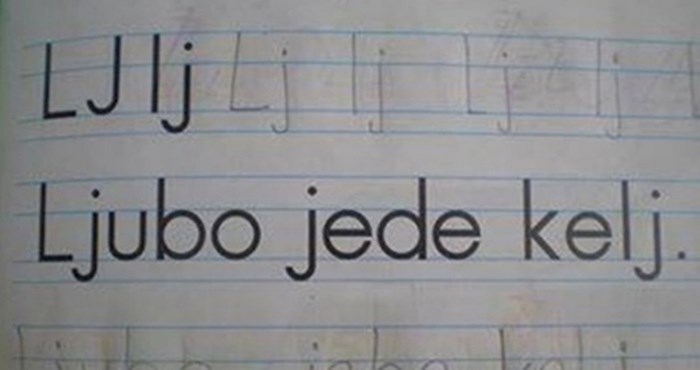 LJ lj Lj lj Lj lj
Ljubo jede kelj.
Ljubo jebe kelj